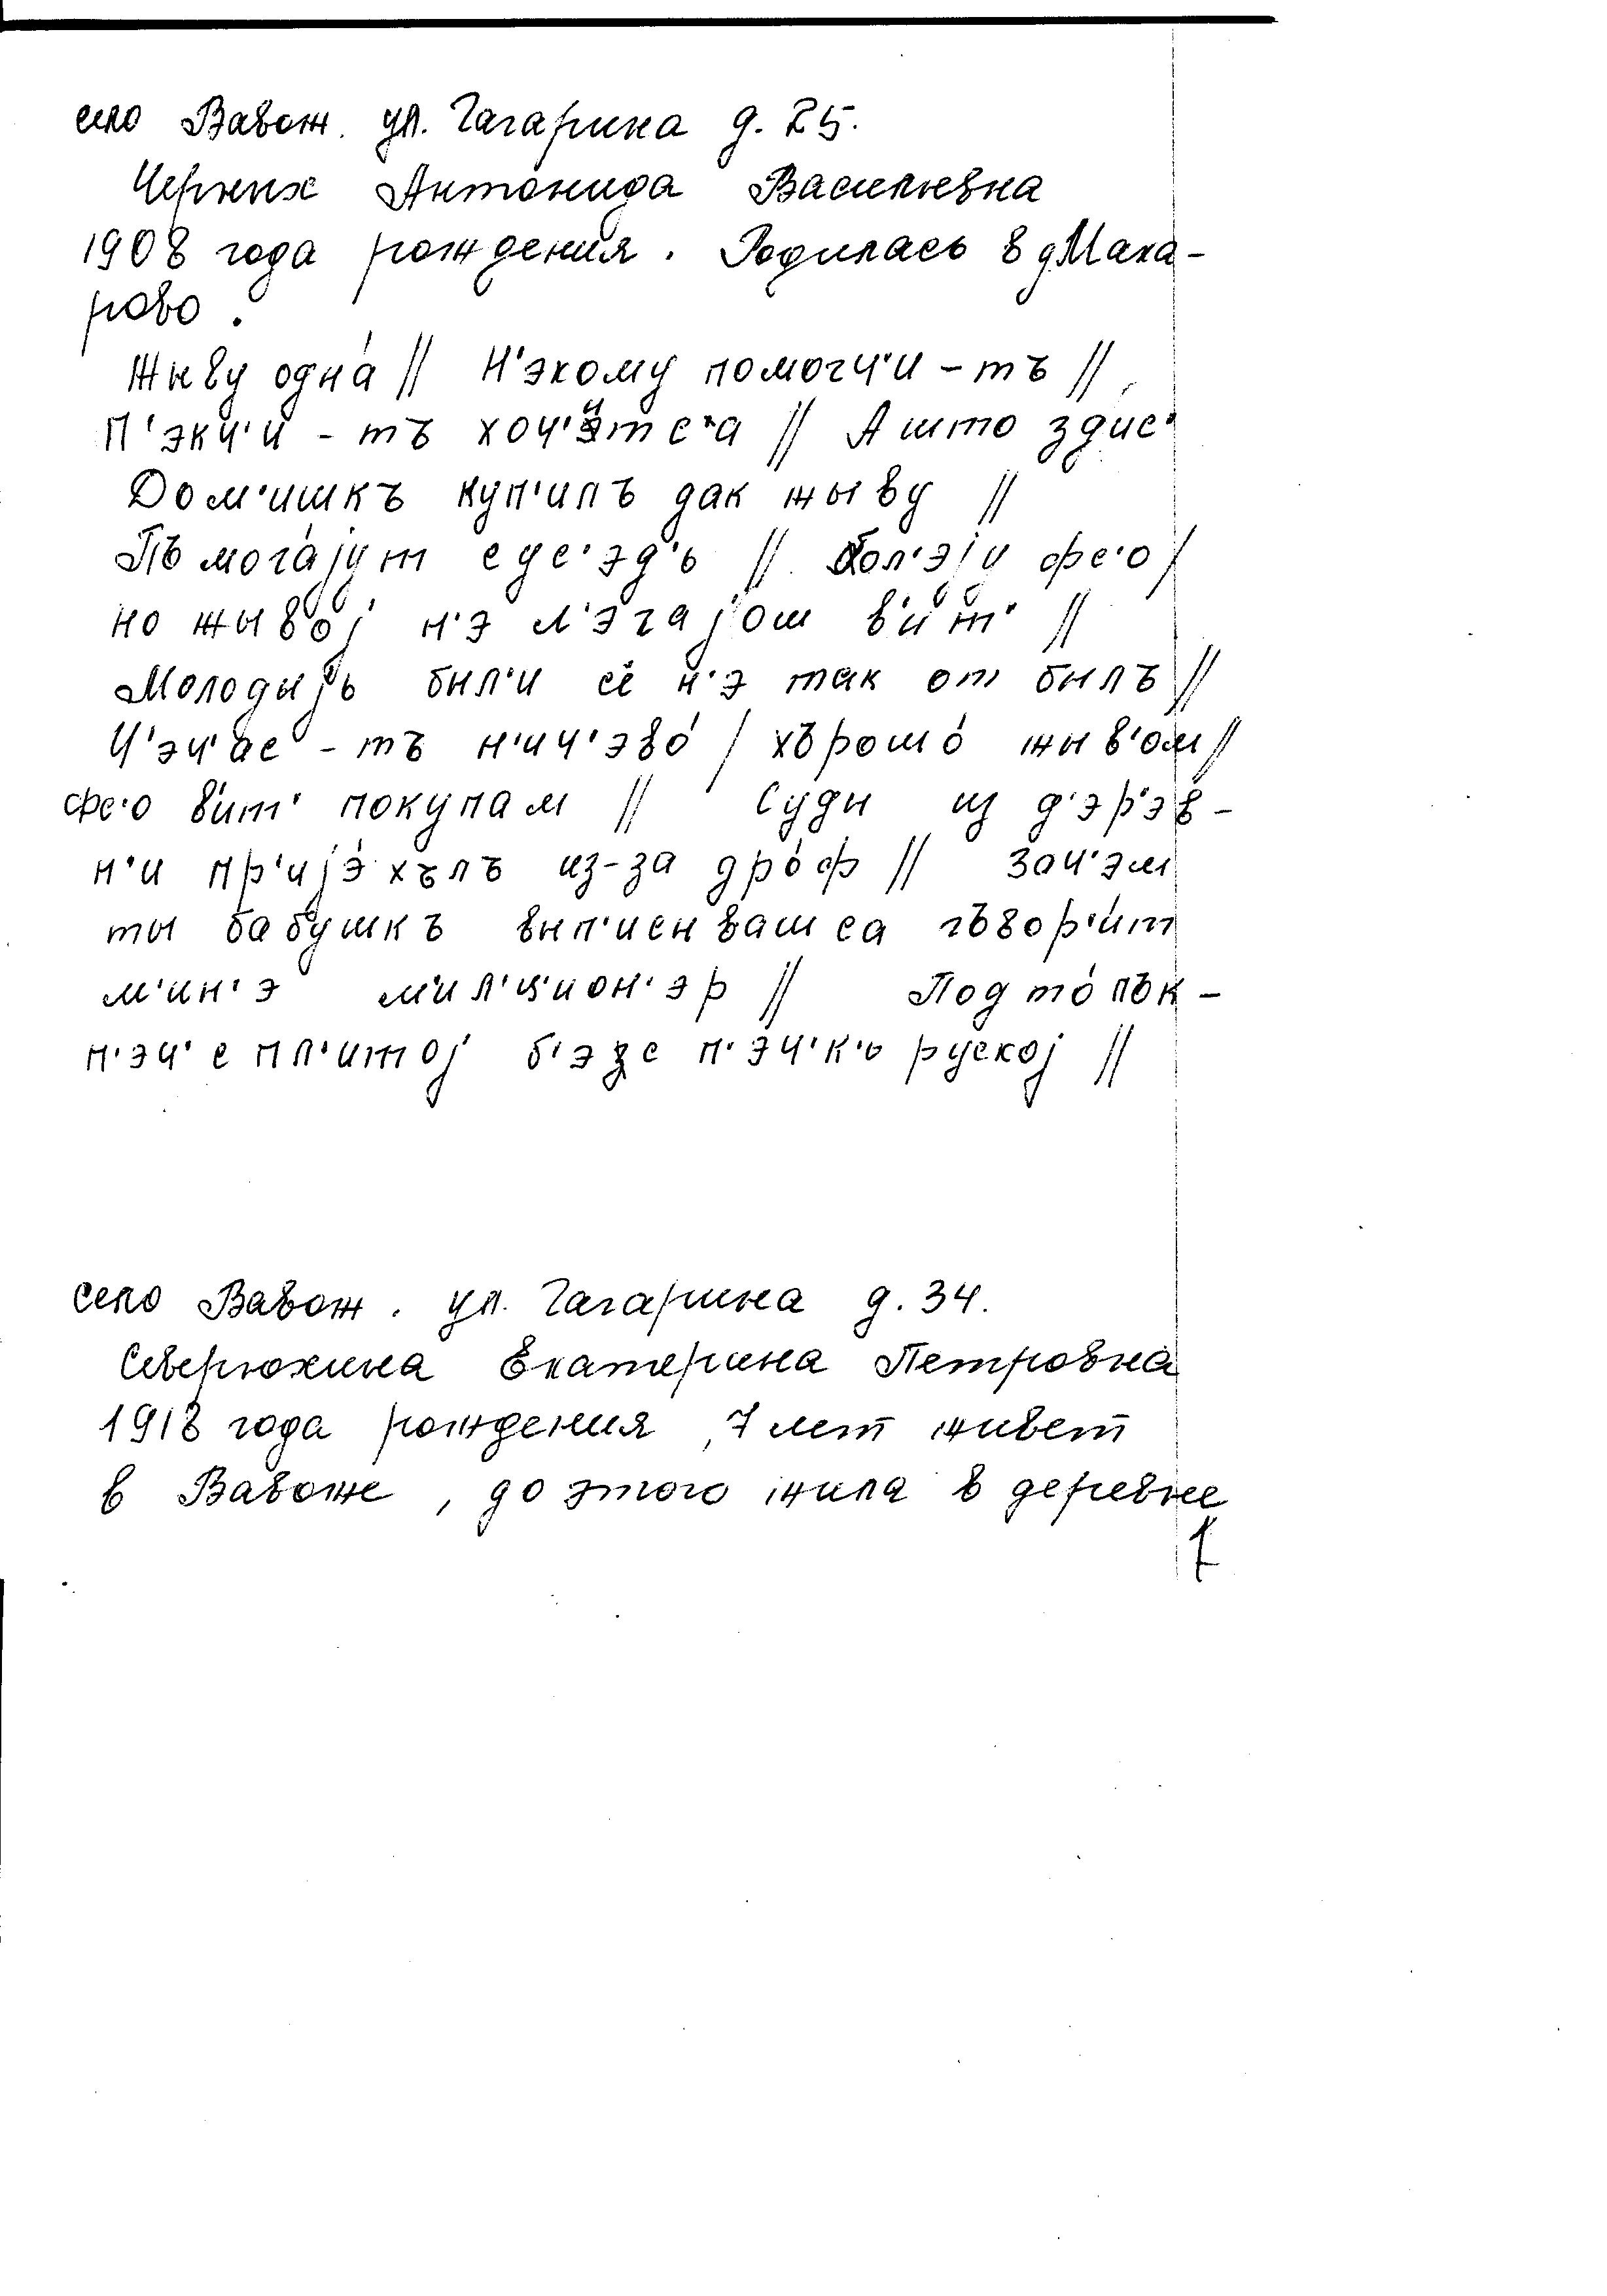 село Вавож. ул. Гагарина д. 25.
Черных Антонида Васильевна
1908 года рождения. Родилась в д Мака-
рово.
Жыву одна́ // Н'экому помогч'и - тъ //
П'экч'и - тъ хоч'итс'а // А што здис'
Дом'ишкъ куп'илъ дак жыву //
Пъмога́jут сус'эд'ь // бол'эjу фс'о /
но жыво́j н'э л'э́гаjош в'ит' //
Молоды́jь был'и сё н'э так от былъ //
Ч'эч'ас - тъ н'ич'эво́ / хърошо́ жыв'ом //
фс'о в'ит' покупам // Суды из д'эр'эв -
н'и пр'иjэ́хълъ из-за дро́ф // Зач'эм
ты бабушкъ вып'исывашса гъвор'и́т
м'ин'э м'ил'ицион'эр // Подто́пък -
п'эч' с пл'итоj б'эзс п'эч'к'ь рускоj //
село Вавож. ул. Гагарина д. 34.
Северюхина Екатерина Петровна
1918 года рождения, 7 лет живет
в Вавоже, до этого жила в деревне
1